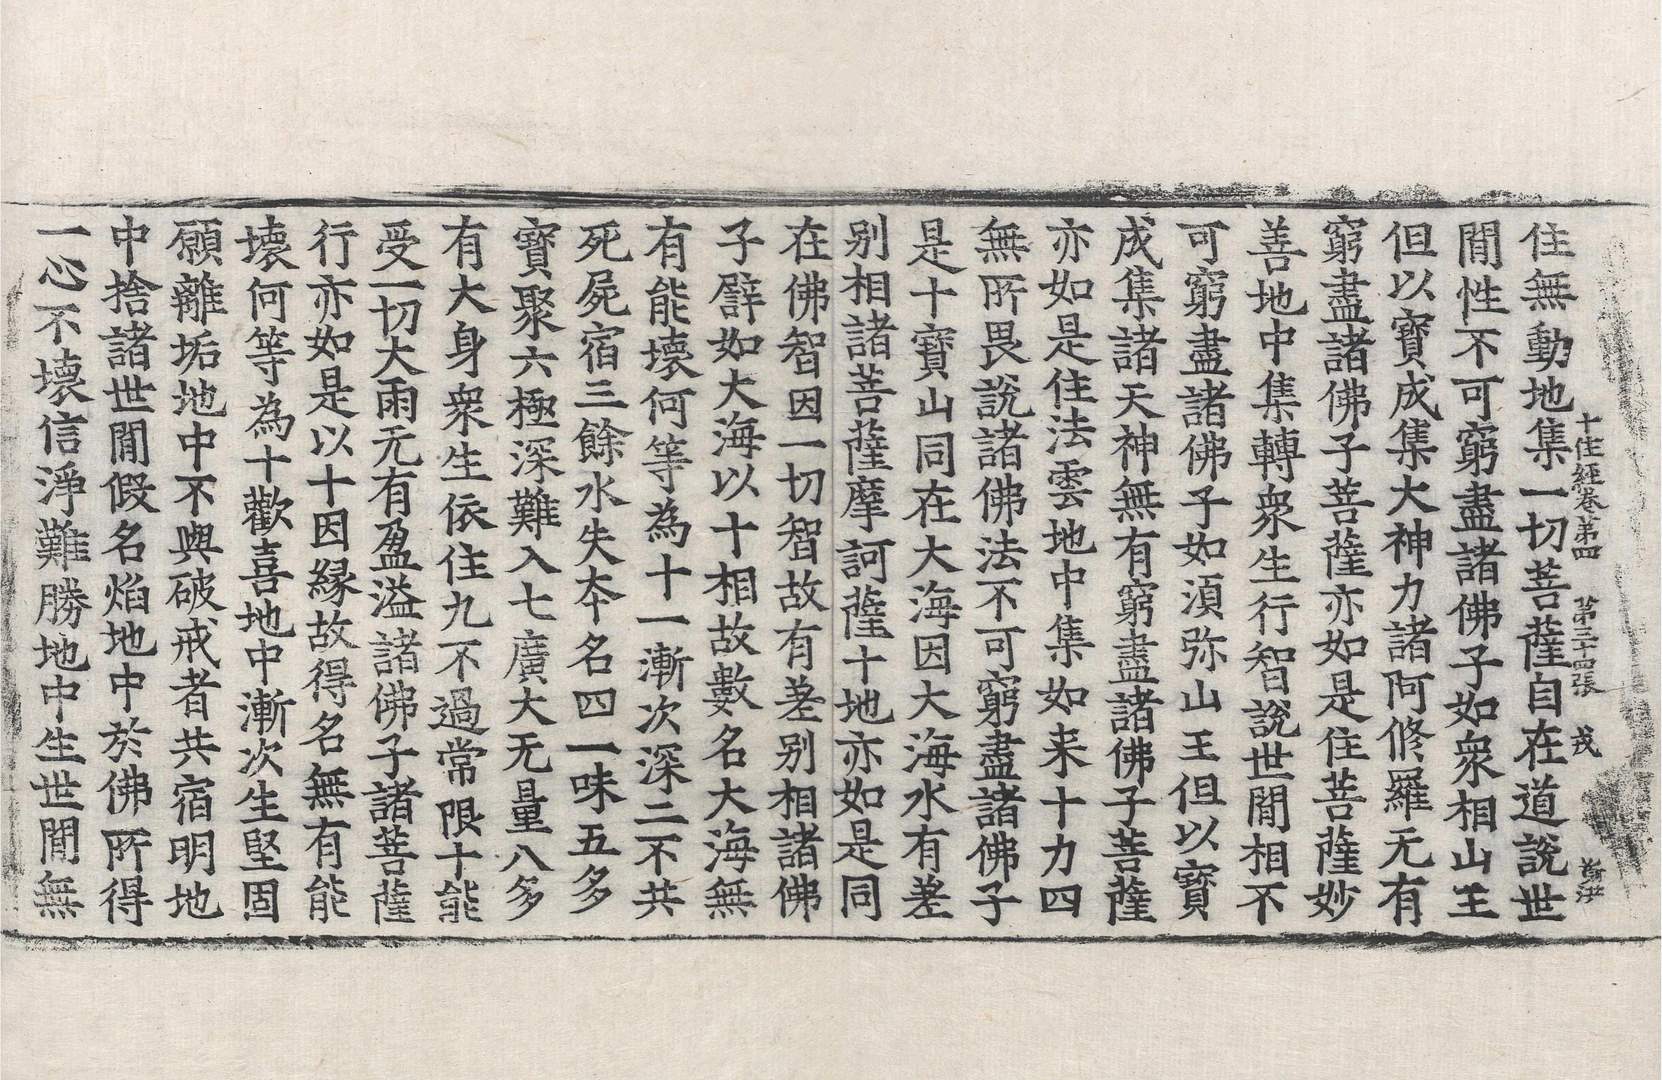 十住經卷第四 第三十四張 戎
住無動地集一切菩薩自在道說世
間性不可窮盡諸佛子如衆相山王
但以寶成集大神力諸阿修羅无有
窮盡諸佛子菩薩亦如是住菩薩妙
善地中集轉衆生行智說世間相不
可窮盡諸佛子如須弥山王但以寶
成集諸天神無有窮盡諸佛子菩薩
亦如是住法雲地中集如来十力四
無所畏說諸佛法不可窮盡諸佛子
是十寶山同在大海因大海水有差
别相諸菩薩摩訶薩十地亦如是同
在佛智因一切智故有差别相諸佛
子譬如大海以十相故數名大海無
有能壞何等為十一漸次深二不共
死屍宿三餘水失夲名四一味五多
寶聚六極深難入七廣大无量八多
有大身衆生依住九不過常限十能
受一切大雨无有盈溢諸佛子諸菩薩
行亦如是以十因縁故得名無有能
壞何等為十歡喜地中漸次生堅固
願離垢地中不與破戒者共宿明地
中捨諸世間假名焰地中於佛所得
一心不壞信淨難勝地中生世間無